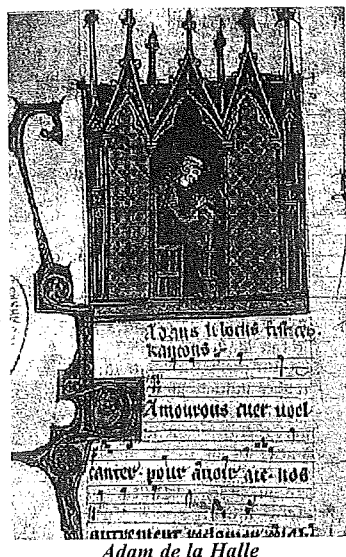 Adans li bocus fist ces
kancons
Amourous cuer voel
canter pour auoir aie nos
autrement
Adam de la Halle